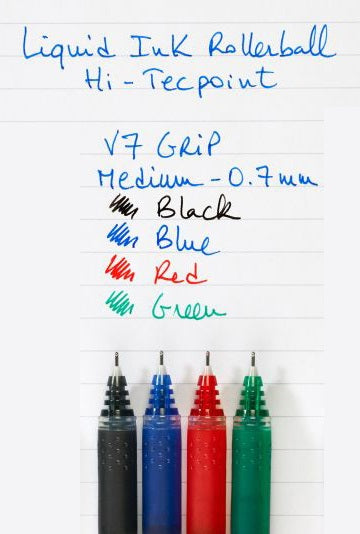 Liquid Ink Rollerball
Hi-Tecpoint
V7 GRiP
Medium-0.7mm
Black
Blue
Red
Green